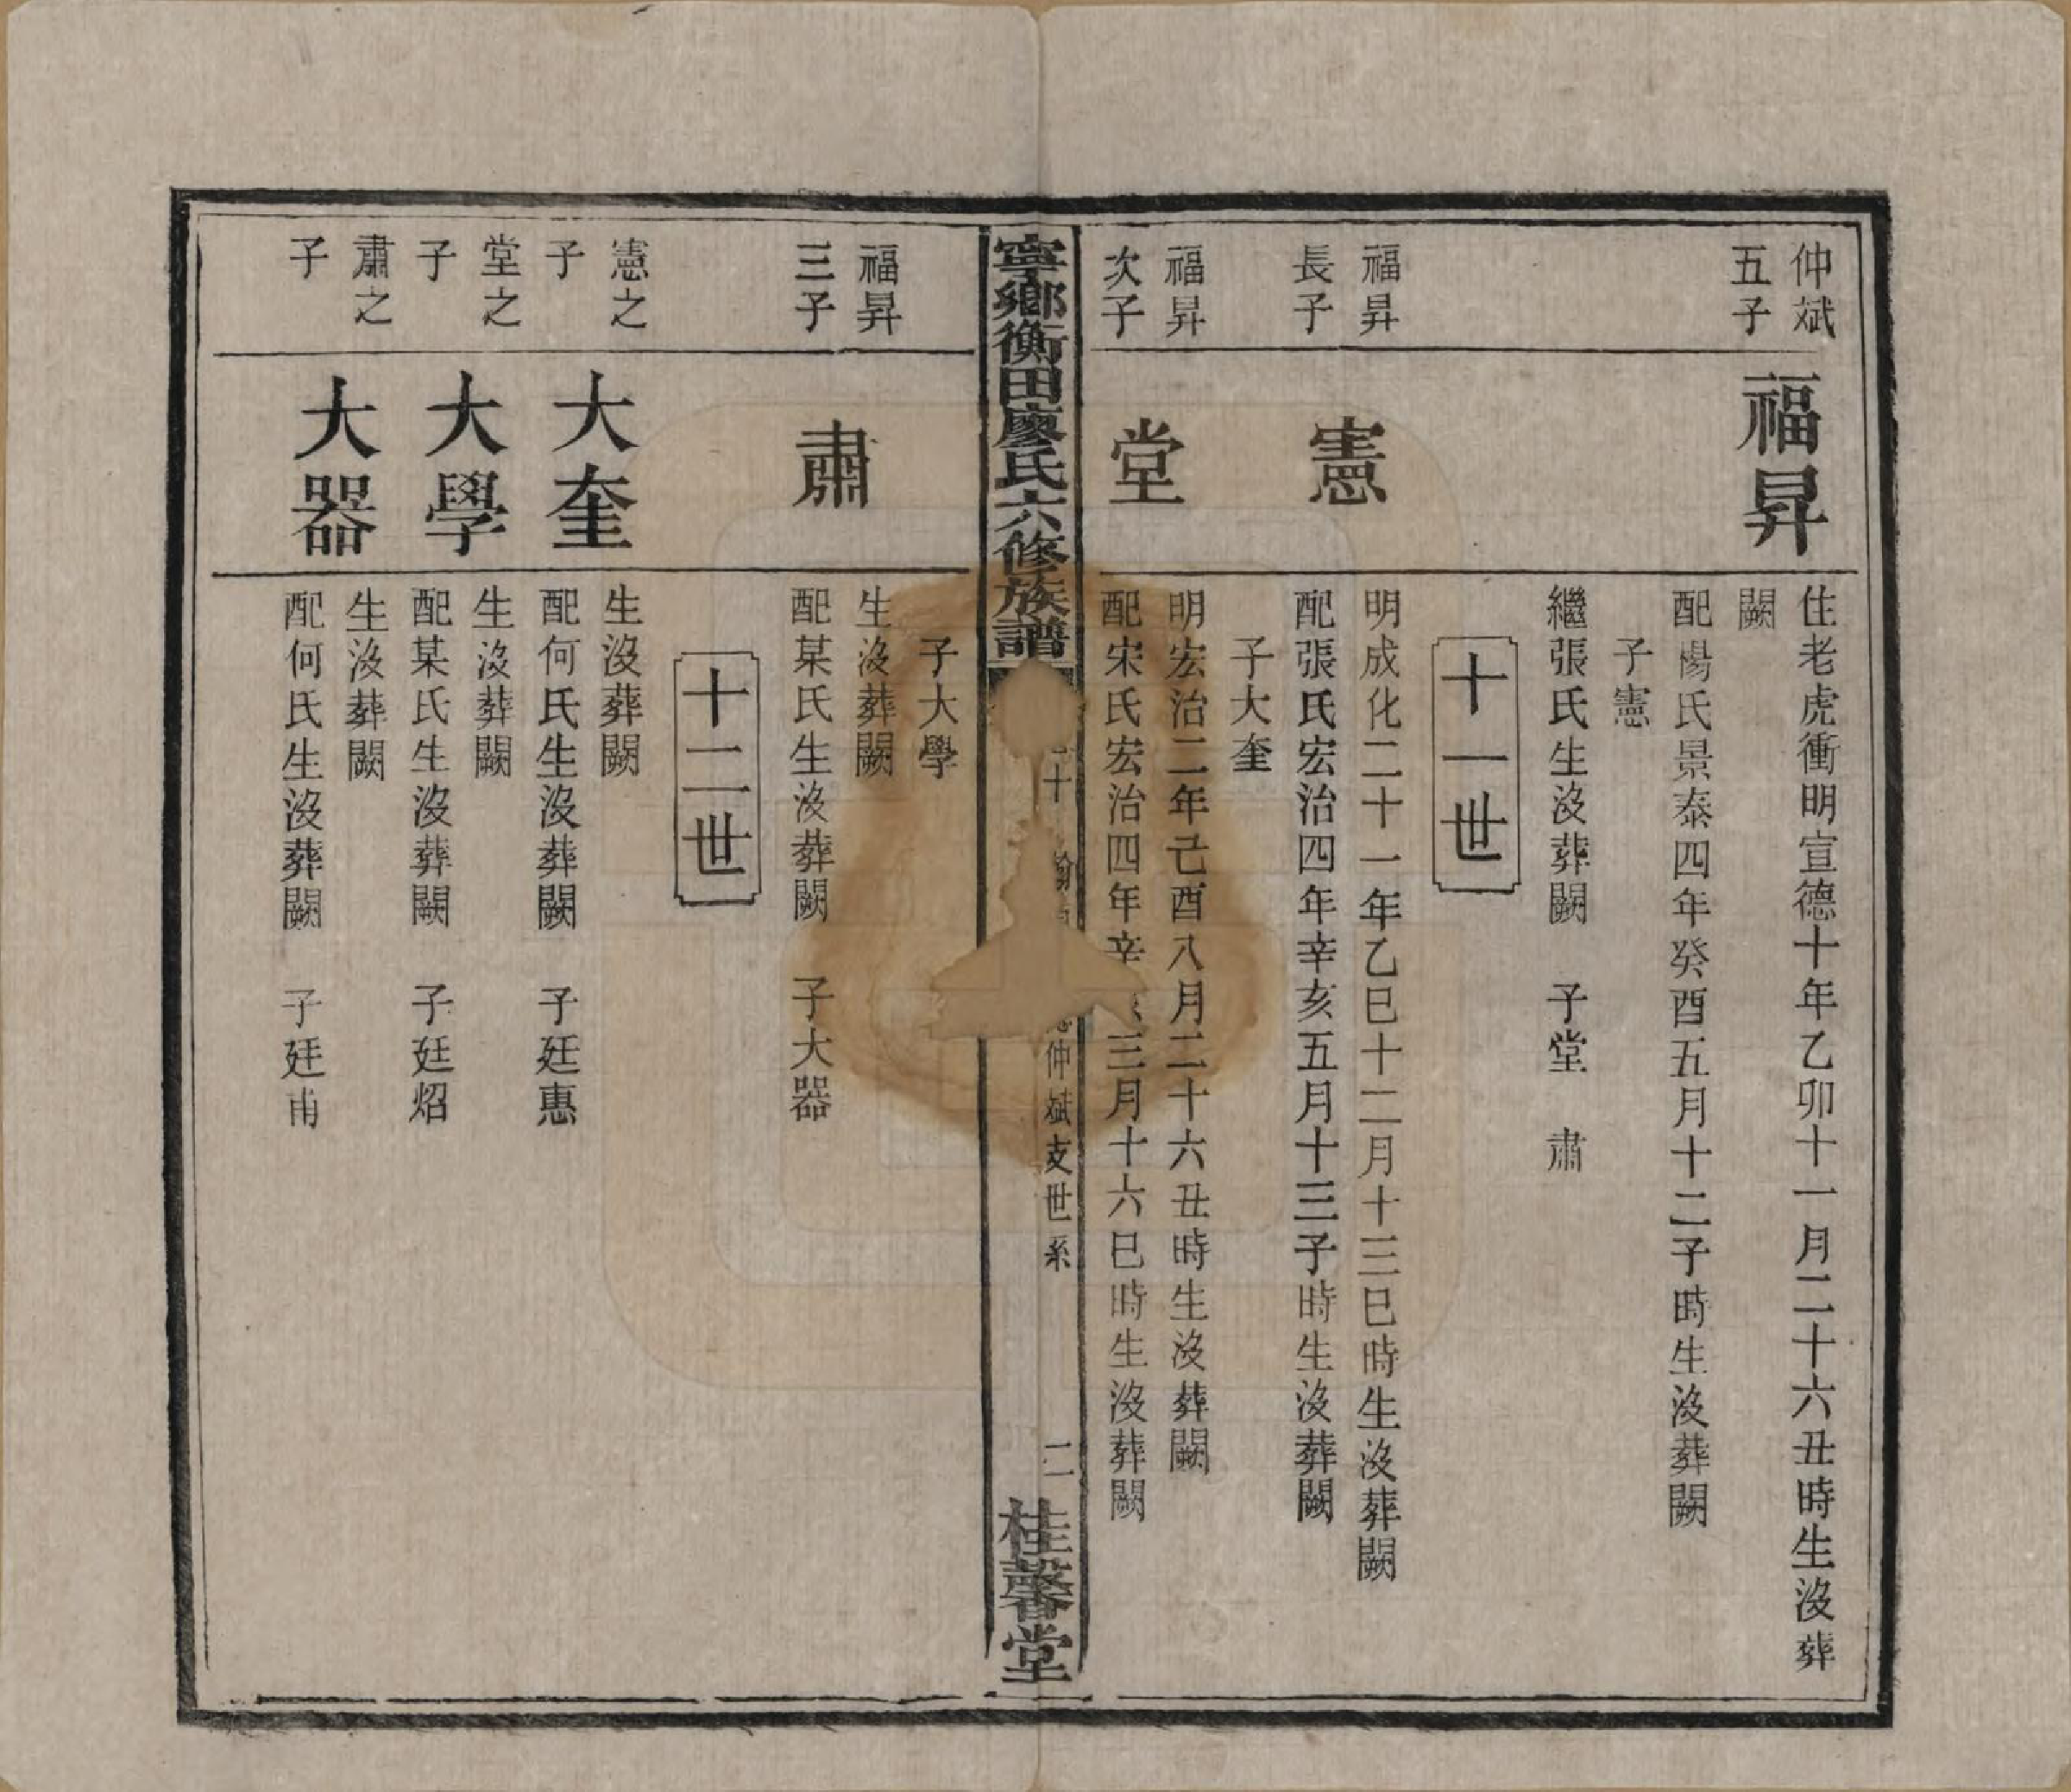 仲斌
五子
福昇
住老虎衝明宣德十年乙卯十一月二十六丑時生沒葬
闕
配楊氏景泰四年癸酉五月十二子時生沒葬闕
子憲
繼張氏生沒葬闕 子堂 肅
十一世
福昇
長子
憲
明成化二十一年乙巳十二月十三巳時生沒葬闕
配張氏宏治四年辛亥五月十三子時生沒葬闕
子大奎
福昇
次子
堂
明宏治二年己酉八月二十六丑時生沒葬闕
配宋氏宏治四年辛 三月十六巳時生沒葬闕
寧鄉衡田廖氏六修族譜
十 仲斌支世系
二
桂馨堂
子大學
福昇
三子
肅
生沒葬闕
配某氏生沒葬闕 子大器
十二世
憲之
子
大奎
生沒葬闕
配何氏生沒葬闕 子廷惠
堂之
子
大學
生沒葬闕
配某氏生沒葬闕 子廷炤
肅之
子
大器
生沒葬闕
配何氏生沒葬闕 子廷甫